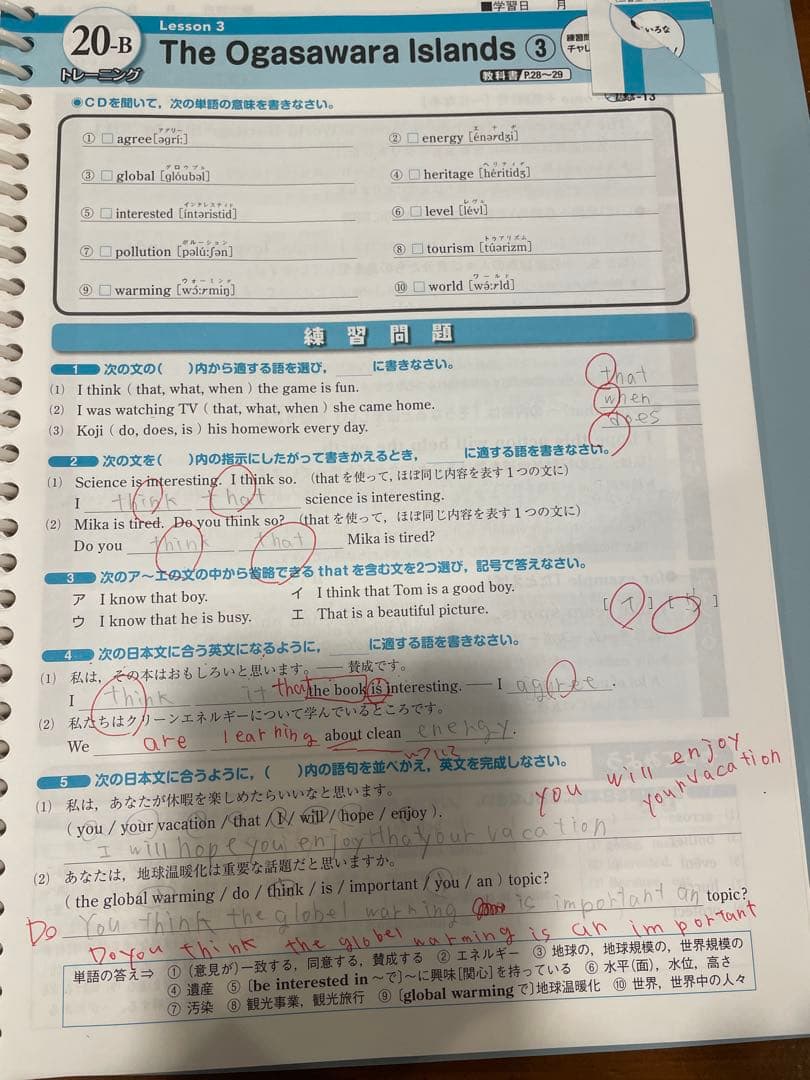 ■学習日　月
20-B
トレーニング
Lesson 3
The Ogasawara Islands ③
教科書 P.28〜29
いろな
◉CDを聞いて，次の単語の意味を書きなさい。
① □ agree[əgríː] アグリー
② □ energy [énərdʒi] エナヂ
③ □ global [glóubəl] グロウブル
④ □ heritage [héritidʒ] ヘリティヂ
⑤ □ interested [íntəristid] インタレスティド
⑥ □ level [lévl] レヴル
⑦ □ pollution [pəlúːʃən] ポルーション
⑧ □ tourism [túərizm] トゥアリズム
⑨ □ warming [wɔ́ːrmiŋ] ウォーミング
⑩ □ world [wə́ːrld] ワールド
練習問題
1 次の文の(　)内から適する語を選び，＿＿に書きなさい。
(1) I think ( that, what, when ) the game is fun. that
(2) I was watching TV ( that, what, when ) she came home. when
(3) Koji ( do, does, is ) his homework every day. does
2 次の文を(　)内の指示にしたがって書きかえるとき，＿＿に適する語を書きなさい。
(1) Science is interesting. I think so. (thatを使って，ほぼ同じ内容を表す1つの文に)
I think that science is interesting.
(2) Mika is tired. Do you think so? (thatを使って，ほぼ同じ内容を表す1つの文に)
Do you think that Mika is tired?
3 次のア〜エの文の中から省略できる that を含む文を2つ選び，記号で答えなさい。
ア I know that boy. イ I think that Tom is a good boy.
ウ I know that he is busy. エ That is a beautiful picture. [ イ ] [ ウ ]
4 次の日本文に合う英文になるように，＿＿に適する語を書きなさい。
(1) 私は，その本はおもしろいと思います。── 賛成です。
I think it that the book is interesting. ── I agree.
(2) 私たちはクリーンエネルギーについて学んでいるところです。
We are learning about clean energy.
について
5 次の日本文に合うように，(　)内の語句を並べかえ，英文を完成しなさい。
(1) 私は，あなたが休暇を楽しめたらいいなと思います。
you will enjoy
your vacation
( you / your vacation / that / I / will / hope / enjoy ).
I will hope you enjoy that your vacation
(2) あなたは，地球温暖化は重要な話題だと思いますか。
( the global warming / do / think / is / important / you / an ) topic?
Do You think the globel warning is important an topic?
Do you think the globel warming is an important
単語の答え⇒ ①(意見が)一致する，同意する，賛成する ②エネルギー ③地球の，地球規模の，世界規模の
④遺産 ⑤[be interested in 〜で]〜に興味[関心]を持っている ⑥水平(面)，水位，高さ
⑦汚染 ⑧観光事業，観光旅行 ⑨[global warmingで]地球温暖化 ⑩世界，世界中の人々